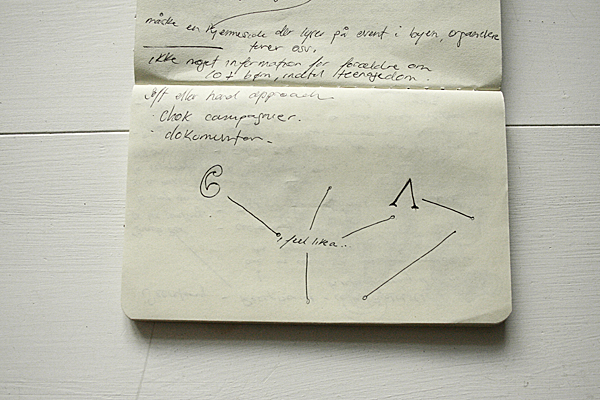 måske en hjemmeside der lyser på event i byen, organisere
turer osv.
ikke noget information for forældre om
10+ børn, indtil teenagedom.
Soft eller hard approach
· chok campagner.
· dokumentar.
I feel like a...